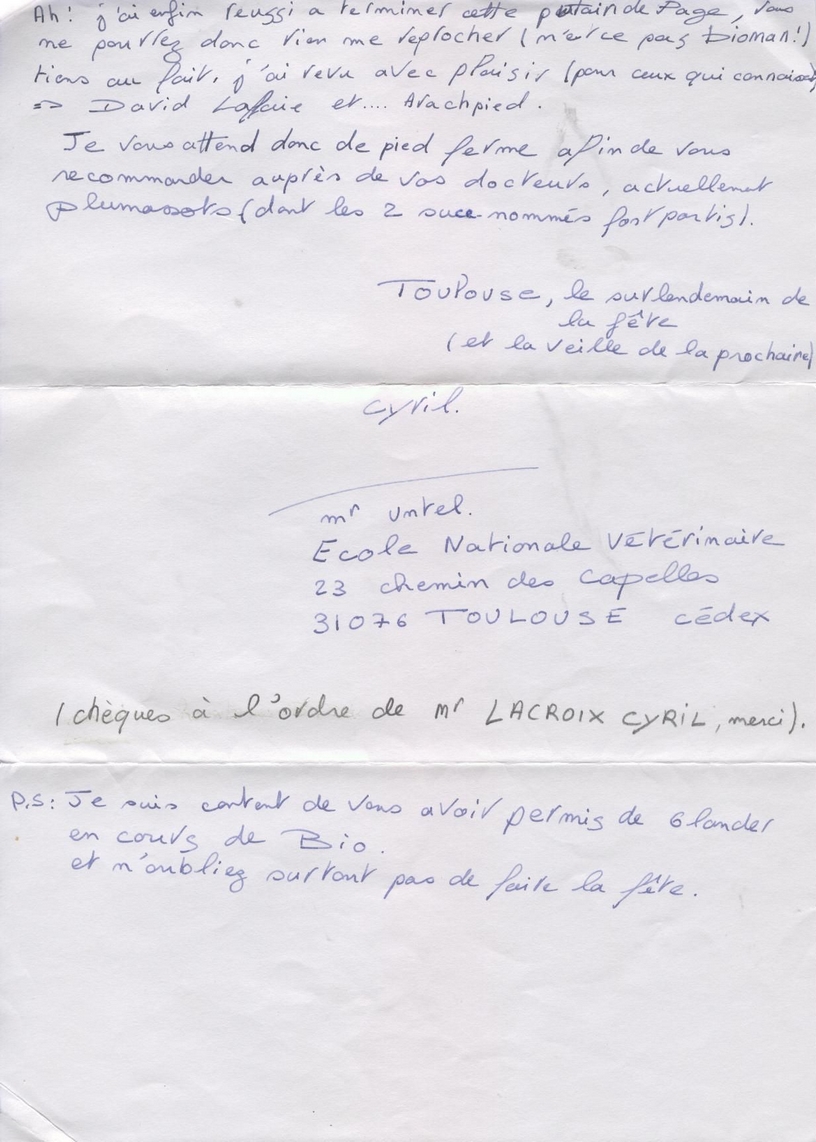 Ah! j'ai enfin reussi a terminer cette putain de Page, vous
ne pourrez donc rien me reprocher (n'est ce pas Bioman!)
tiens au fait, j'ai revu avec plaisir (pour ceux qui connaissent)
=> David Lafaie et.... Arachpied.
Je vous attend donc de pied ferme afin de vous
recommander auprès de vos docteurs, actuellement
plumassots (dont les 2 suce-nommés font partis).
TOUlOUSE, le surlendemain de
la fête
(et la veille de la prochaine)
Cyril.
mr untel.
Ecole Nationale Vétérinaire
23 chemin des capelles
31076 TOULOUSE cédex
(chèques à l'ordre de mr LACROIX CYRIL, merci).
P.S: Je suis content de vous avoir permis de Glander
en cours de Bio.
et n'oubliez surtout pas de faire la fête.